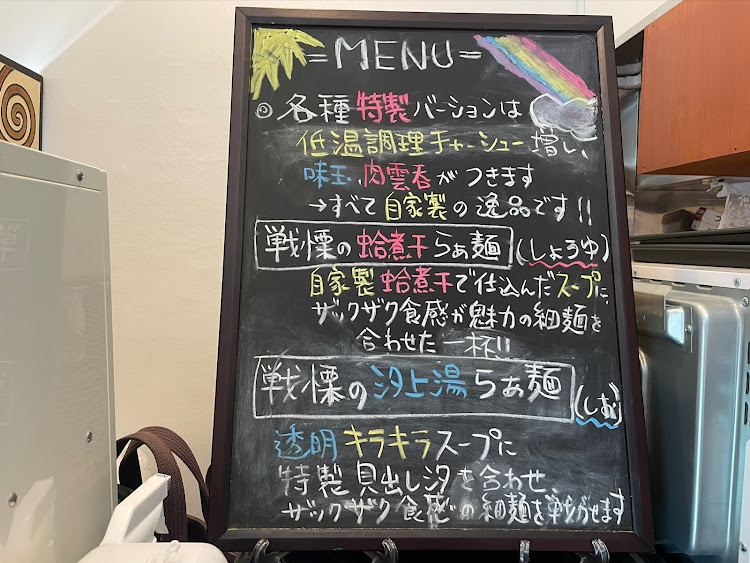 =MENU=
◎各種特製バーションは
低温調理チャーシュー増し、
味玉、肉雲呑がつきます
→すべて自家製の逸品です!!
戦慄の蛤煮干らぁ麺(しょうゆ)
自家製蛤煮干で仕込んだスープに、
ザックザク食感が魅力の細麺を
合わせた一杯!!
戦慄の汐上湯らぁ麺(しお)
透明キラキラスープに
特製見出し汐を合わせ、
ザックザク食感の細麺を戦がせます